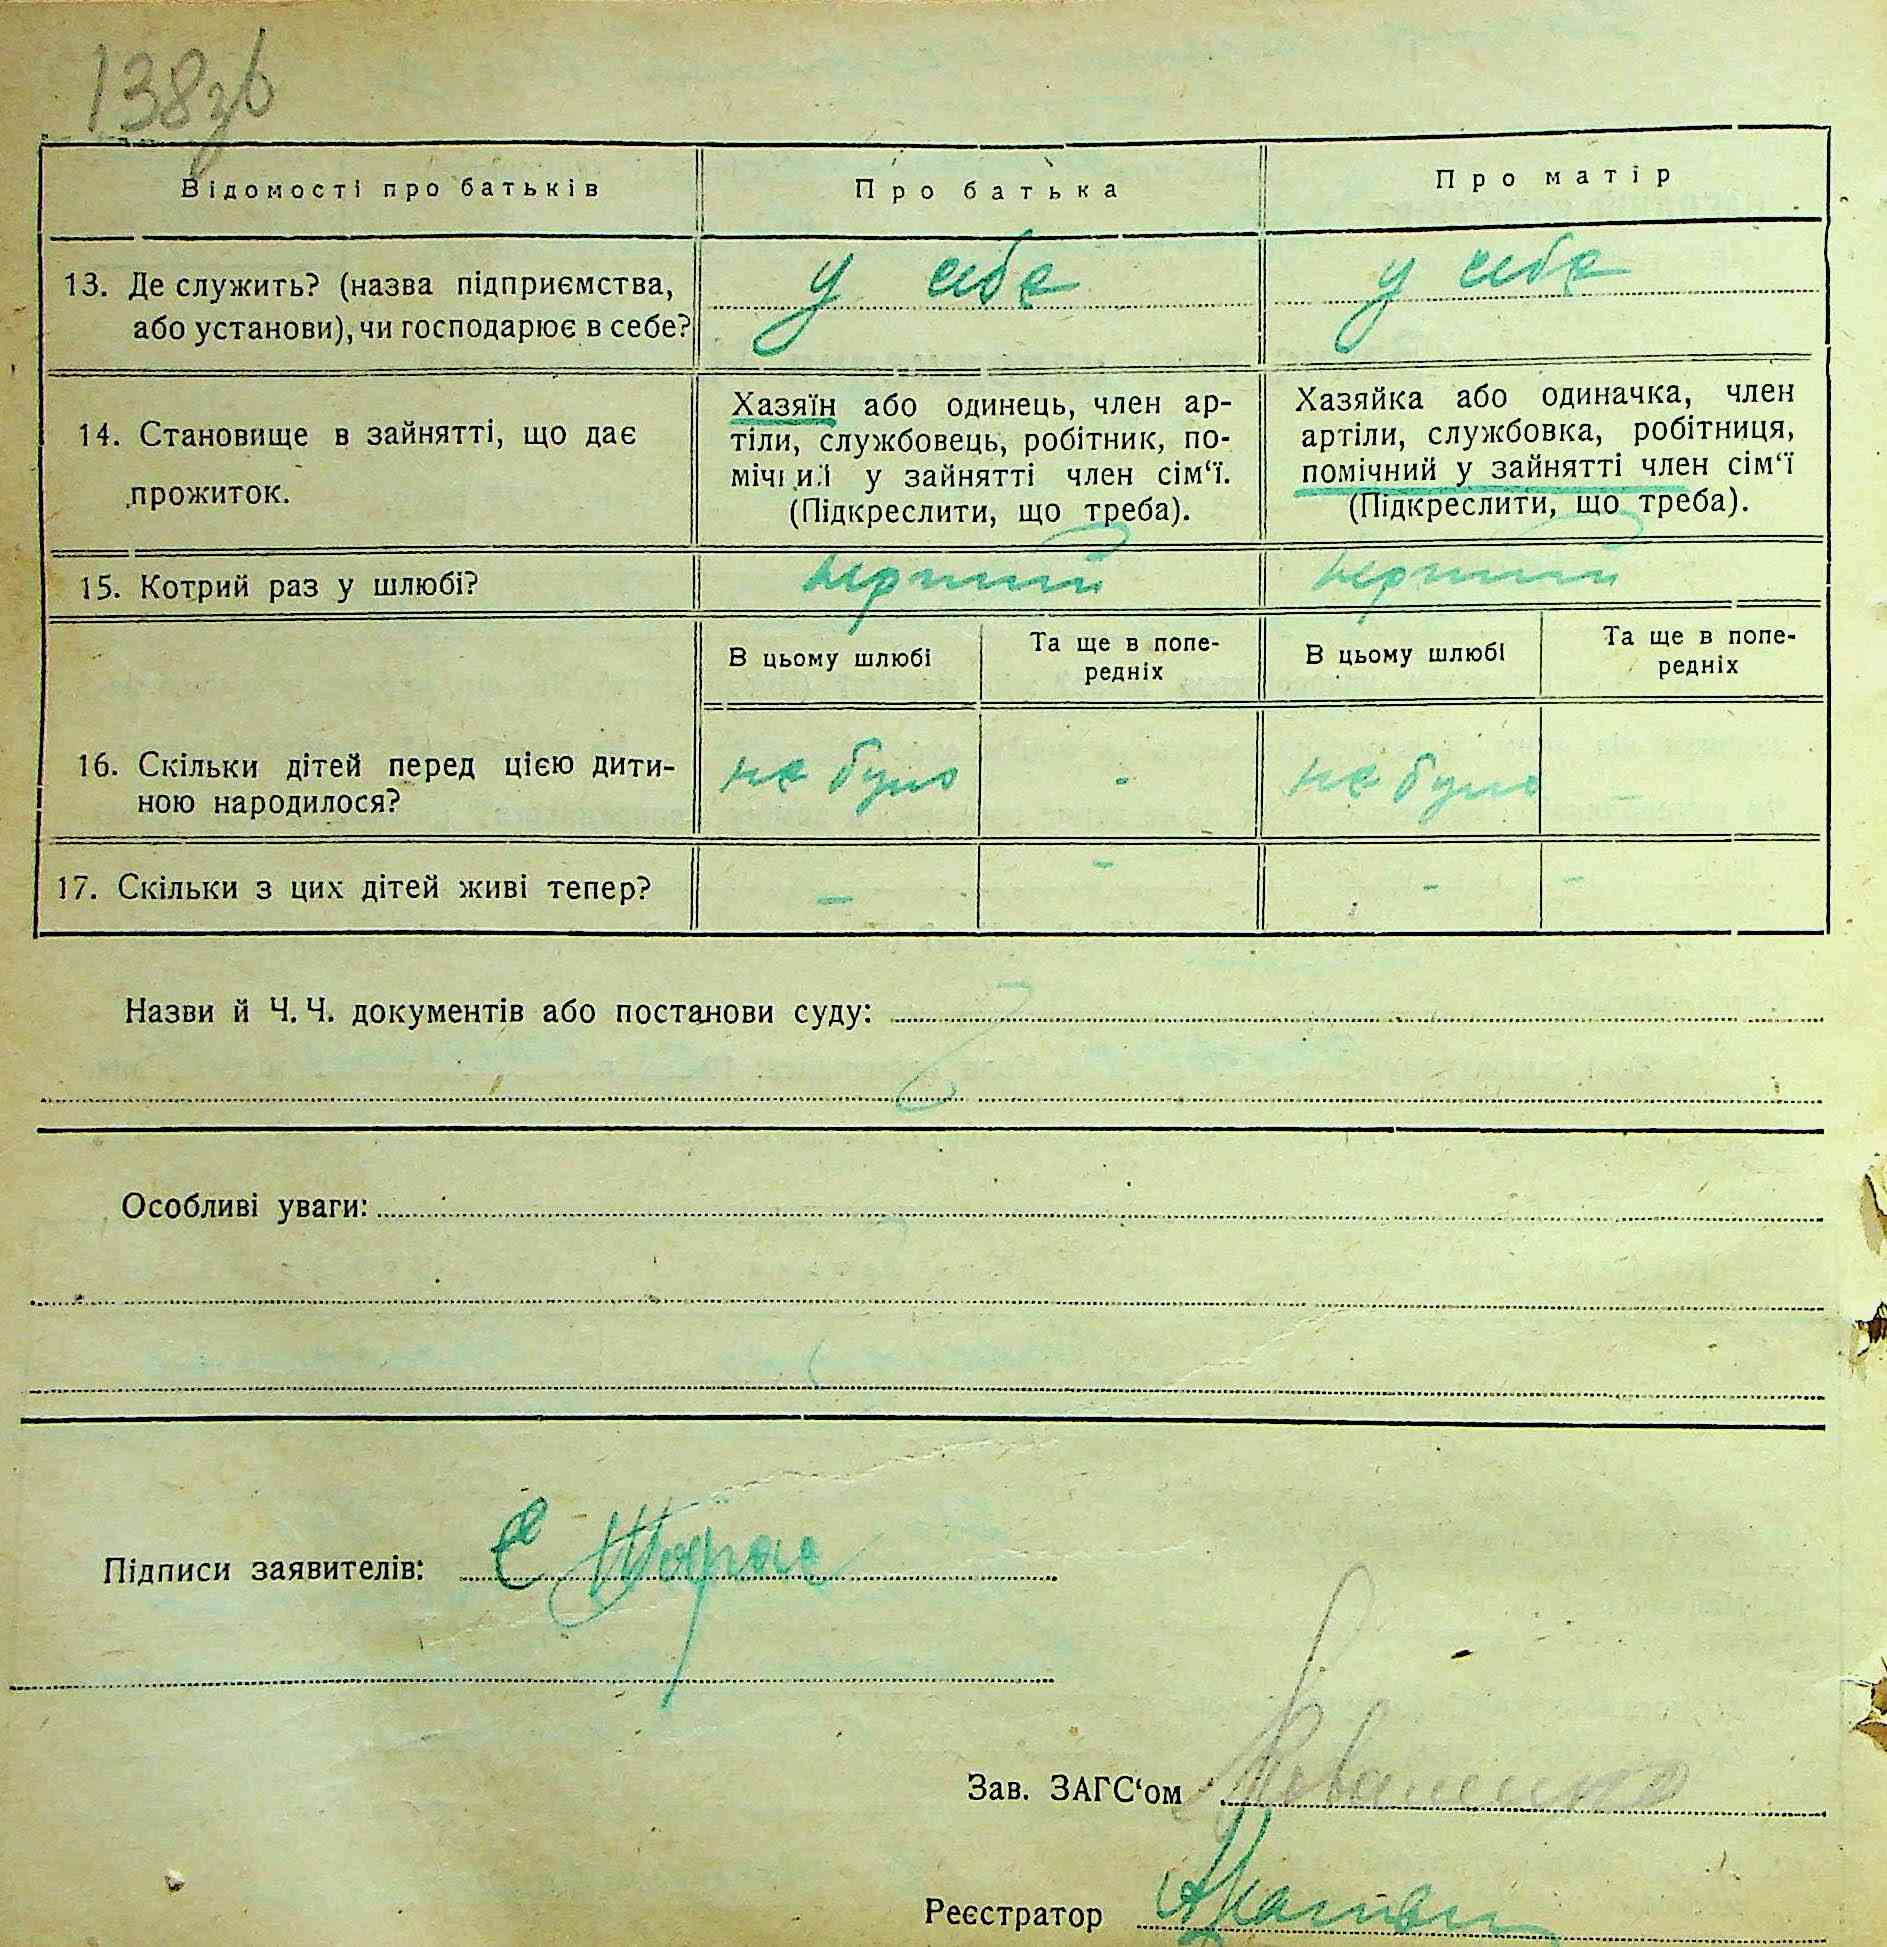 138зв
Відомості про батьків
Про батька
Про матір
13. Де служить? (назва підприємства,
або установи), чи господарює в себе?
у себе
у себе
14. Становище в зайнятті, що дає
прожиток.
Хазяїн або одинець, член ар-
тіли, службовець, робітник, по-
мічний у зайнятті член сім‘ї.
(Підкреслити, що треба).
Хазяйка або одиначка, член
артіли, службовка, робітниця,
помічний у зайнятті член сім‘ї
(Підкреслити, що треба).
15. Котрий раз у шлюбі?
перший
перший
В цьому шлюбі
Та ще в попе-
редніх
В цьому шлюбі
Та ще в попе-
редніх
16. Скільки дітей перед цією дити-
ною народилося?
не було
-
не було
–
17. Скільки з цих дітей живі тепер?
–
-
-
-
Назви й Ч. Ч. документів або постанови суду:
Особливі уваги:
Підписи заявителів: Є
Зав. ЗАГС‘ом Коваленко
Реєстратор